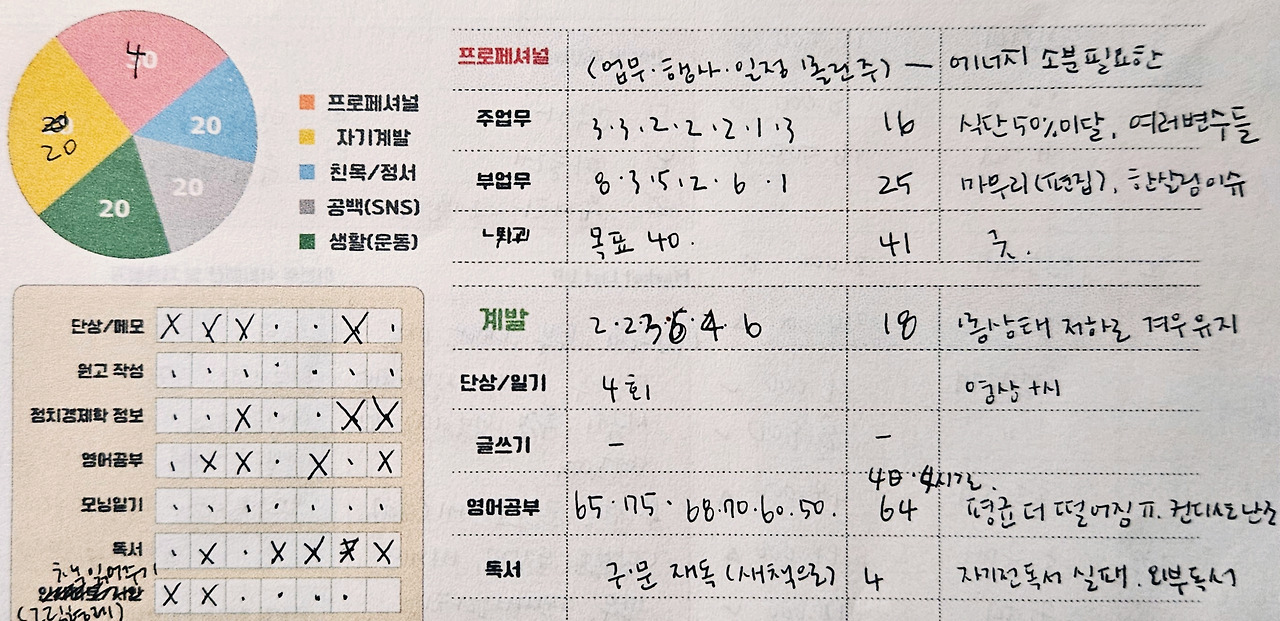 4
20
20
20
20
프로페셔널
자기계발
친목/정서
공백(SNS)
생활(운동)
프로페셔널 (업무·행사·일정 플란주) — 에너지 소분필요한
주업무 3·3·2·2·2·1·3 16 식단50%미달, 여러변수들
부업무 8·3·5·2·6·1 25 마무리(편집), 한살림이슈
목표 40. 41 굿.
계발 2·2·3·5·4·6 18 몸상태 저하로 겨우유지
단상/일기 4회 명상+시
글쓰기 — —
4日·4시간.
영어공부 65·75·68·70·60·50. 64 평균 더 떨어짐 ㅠ. 컨디션도난조
독서 구·문 재독(새책으로) 4 자기전독서 실패. 외부독서
단상/메모 X X X · · X ·
원고 작성 · · · · · · ·
정치경제학 정보 · · X · · X X
영어공부 · X X · X · X
모닝일기 · · · · · · ·
독서 · X · X X X X
책읽어주기
X X · · · ·